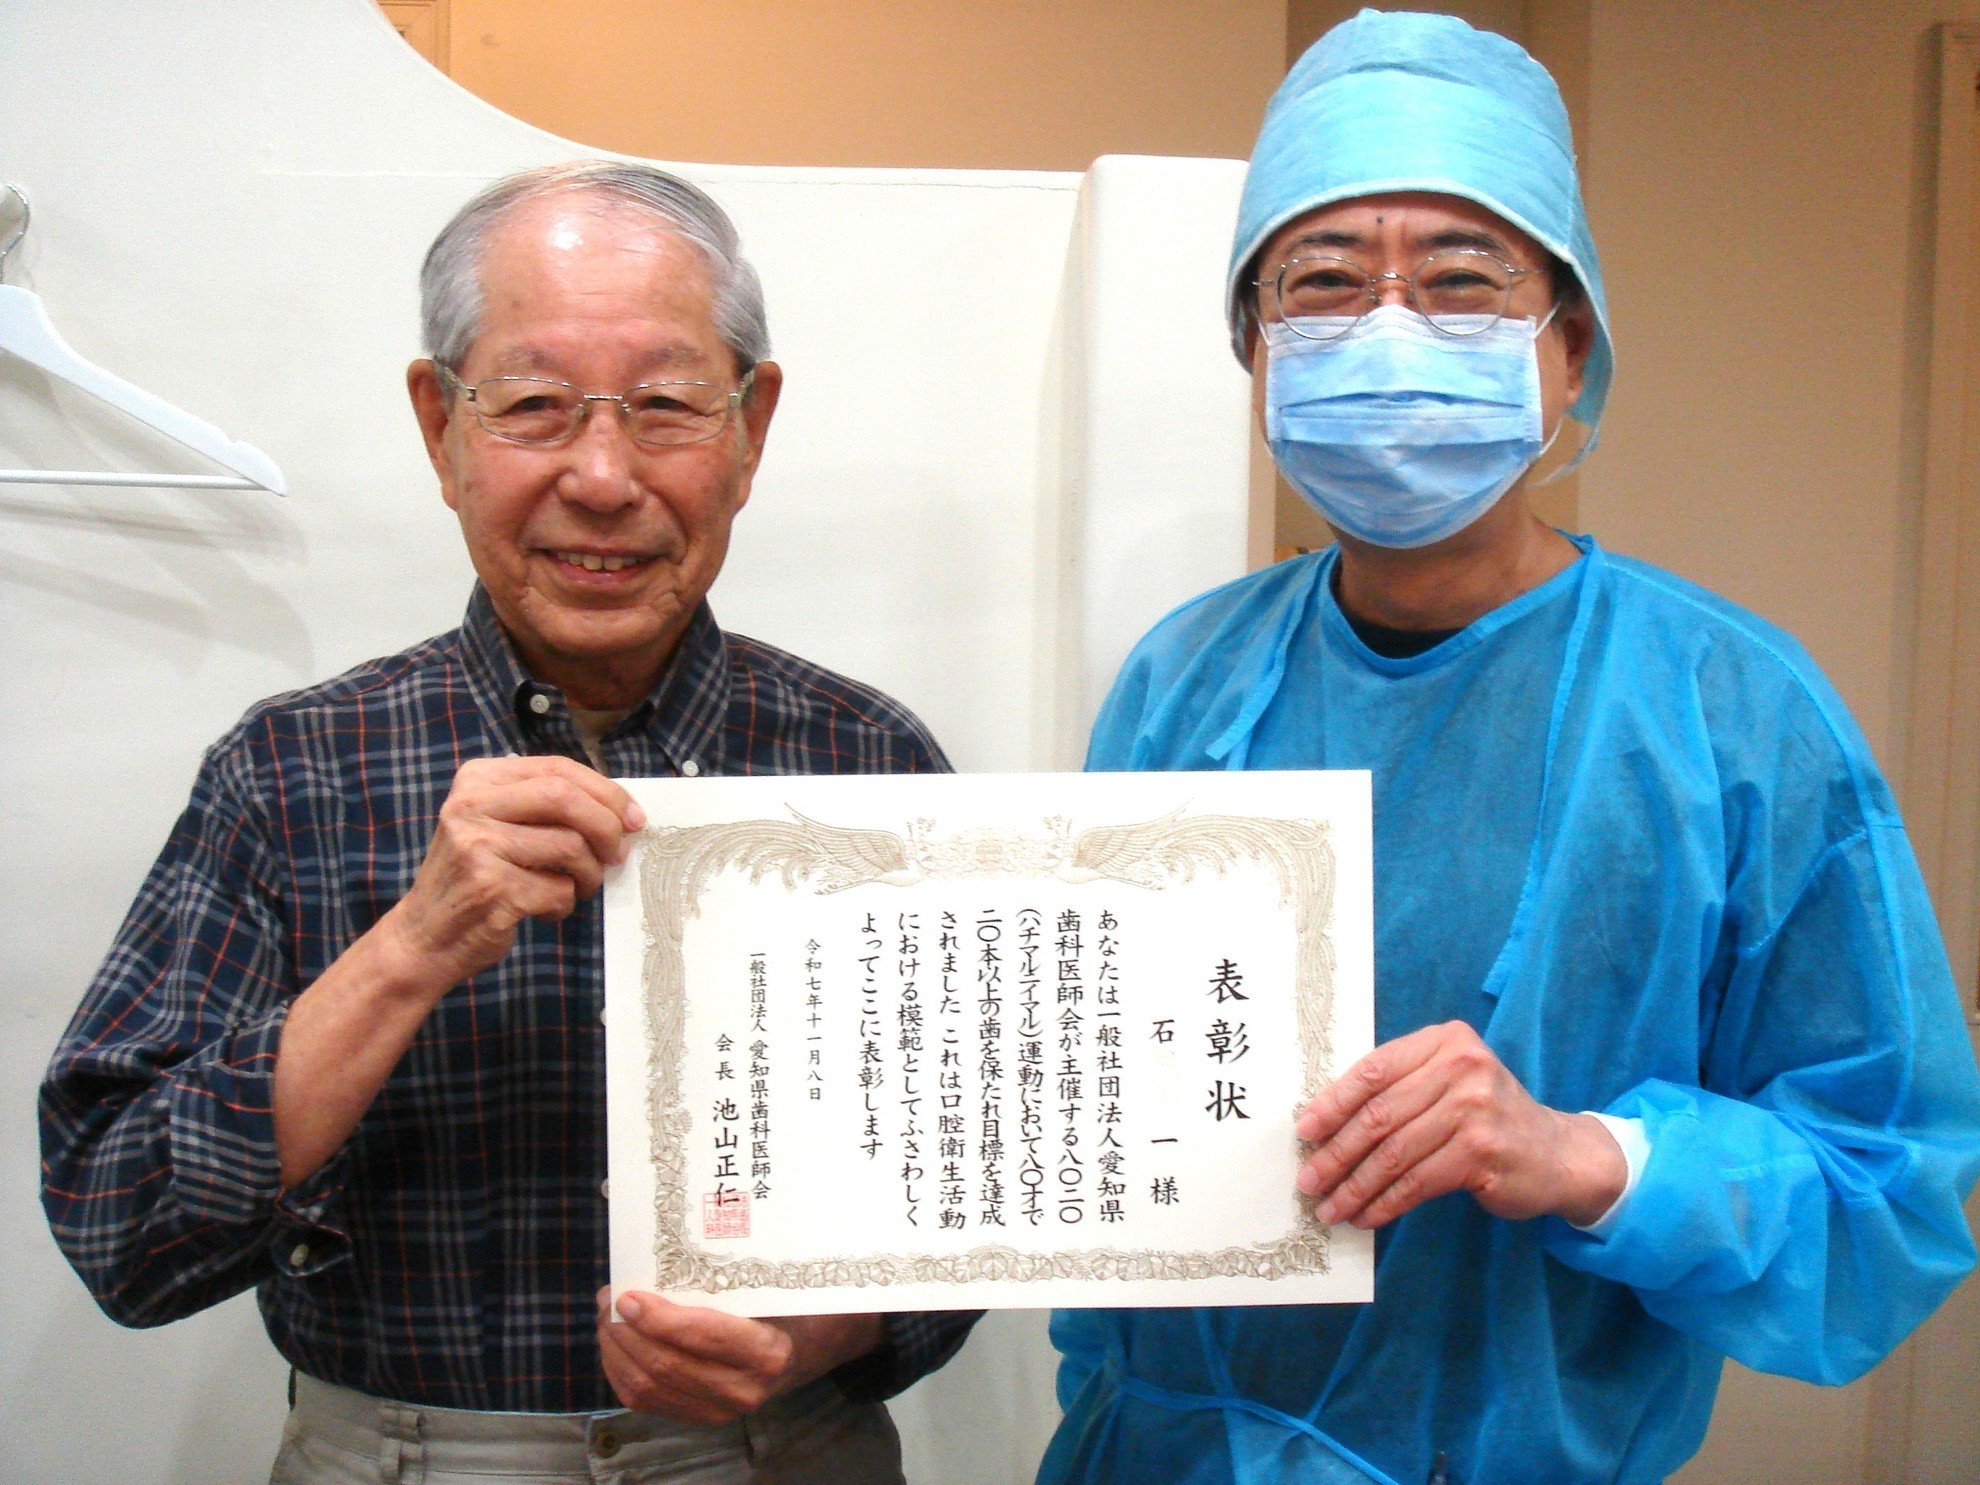 表彰状
石 一 様
あなたは一般社団法人愛知県
歯科医師会が主催する八〇二〇
(ハチマルニイマル)運動において八〇才で
二〇本以上の歯を保たれ目標を達成
されました これは口腔衛生活動
における模範としてふさわしく
よってここに表彰します
令和七年十一月八日
一般社団法人 愛知県歯科医師会
会長 池山正仁